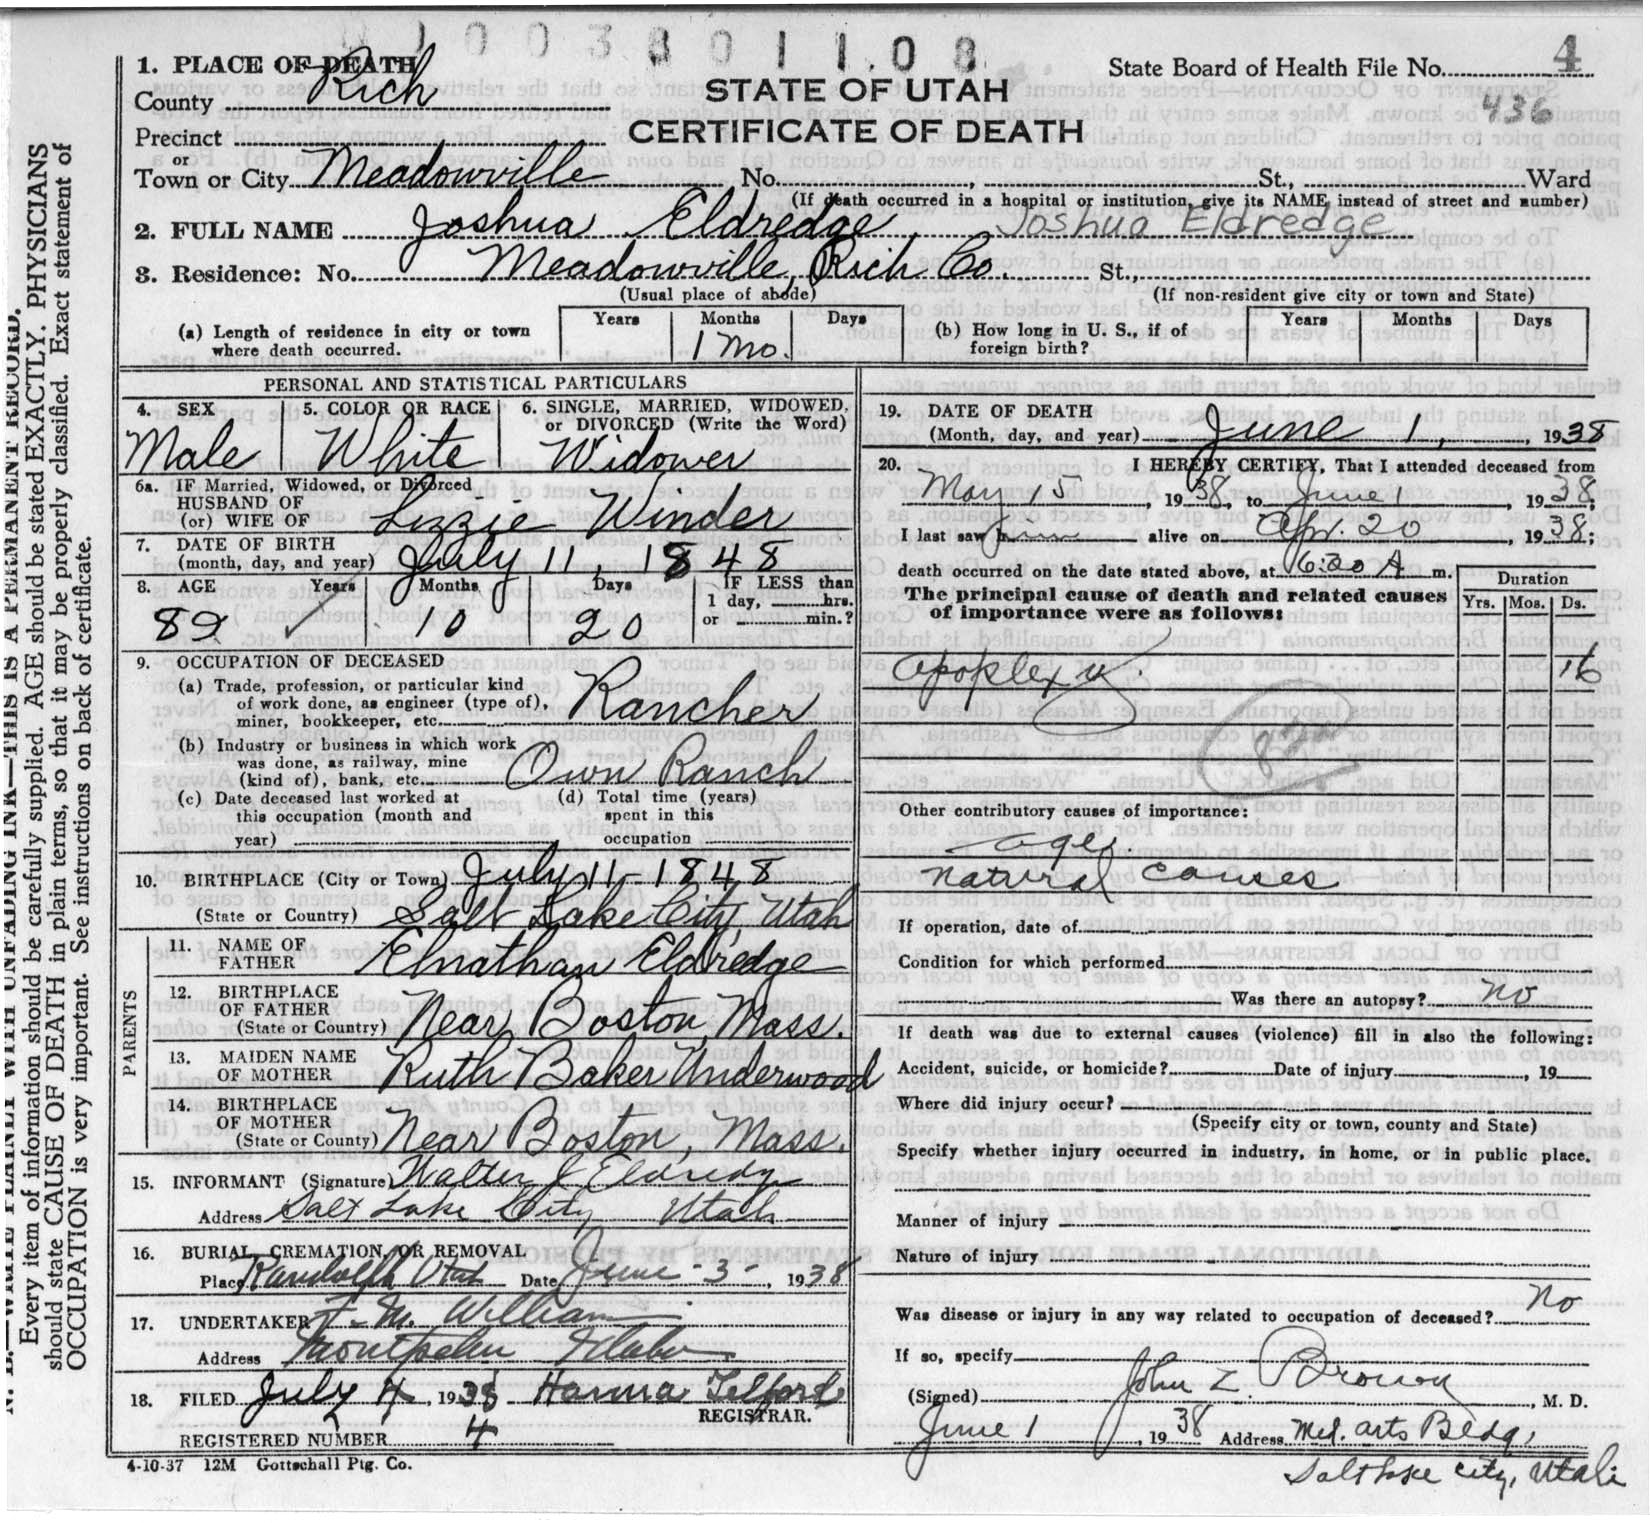 01003801108
1. PLACE OF DEATH
State Board of Health File No. 4
County Rich
STATE OF UTAH
436
Precinct
CERTIFICATE OF DEATH
or
Town or City Meadowville No. , St., Ward
(If death occurred in a hospital or institution, give its NAME instead of street and number)
2. FULL NAME Joshua Eldredge Joshua Eldredge
3. Residence: No. Meadowville, Rich Co. St.,
(Usual place of abode) (If non-resident give city or town and State)
(a) Length of residence in city or town where death occurred. Years Months Days
1 Mo.
(b) How long in U. S., if of foreign birth? Years Months Days
PERSONAL AND STATISTICAL PARTICULARS
4. SEX 5. COLOR OR RACE 6. SINGLE, MARRIED, WIDOWED, or DIVORCED (Write the Word)
Male White Widower
6a. IF Married, Widowed, or Divorced
HUSBAND OF
(or) WIFE OF Lizzie Winder
7. DATE OF BIRTH
(month, day, and year) July 11, 1848
8. AGE Years Months Days IF LESS than
1 day, hrs.
or min.?
89 10 20
9. OCCUPATION OF DECEASED
(a) Trade, profession, or particular kind
of work done, as engineer (type of),
miner, bookkeeper, etc. Rancher
(b) Industry or business in which work
was done, as railway, mine
(kind of), bank, etc. Own Ranch
(c) Date deceased last worked at
this occupation (month and
year)
(d) Total time (years)
spent in this
occupation
10. BIRTHPLACE (City or Town) July 11-1848
(State or Country) Salt Lake City, Utah
PARENTS
11. NAME OF
FATHER Elnathan Eldredge
12. BIRTHPLACE
OF FATHER
(State or Country) Near Boston, Mass.
13. MAIDEN NAME
OF MOTHER Ruth Baker Underwood
14. BIRTHPLACE
OF MOTHER
(State or County) Near Boston, Mass.
15. INFORMANT (Signature) Walter J. Eldredge
Address Salt Lake City Utah
16. BURIAL, CREMATION, OR REMOVAL
Place Randolph Utah Date June -3-, 1938
17. UNDERTAKER F. M. William
Address Montpelier Idaho
18. FILED July 4, 1938 Hanna Telford
REGISTRAR.
REGISTERED NUMBER 4
4-10-37 12M Gottschall Ptg. Co.
19. DATE OF DEATH
(Month, day, and year) June 1, , 1938
20. I HEREBY CERTIFY, That I attended deceased from
May 15, 1938, to June 1, 1938,
I last saw him alive on Apr. 20, 1938;
death occurred on the date stated above, at 6:20 A m.
The principal cause of death and related causes
of importance were as follows:
Duration
Yrs. Mos. Ds.
Apoplexy. 16
Other contributory causes of importance:
age.
natural causes
If operation, date of
Condition for which performed
Was there an autopsy? no
If death was due to external causes (violence) fill in also the following:
Accident, suicide, or homicide? Date of injury , 19
Where did injury occur?
(Specify city or town, county and State)
Specify whether injury occurred in industry, in home, or in public place.
Manner of injury
Nature of injury
Was disease or injury in any way related to occupation of deceased? no
If so, specify
(Signed) John Z. Brown, M. D.
June 1, 1938 Address Med. Arts Bldg,
Salt Lake City, Utah
N. B.—WRITE PLAINLY WITH UNFADING INK—THIS IS A PERMANENT RECORD.
Every item of information should be carefully supplied. AGE should be stated EXACTLY. PHYSICIANS
should state CAUSE OF DEATH in plain terms, so that it may be properly classified. Exact statement of
OCCUPATION is very important. See instructions on back of certificate.